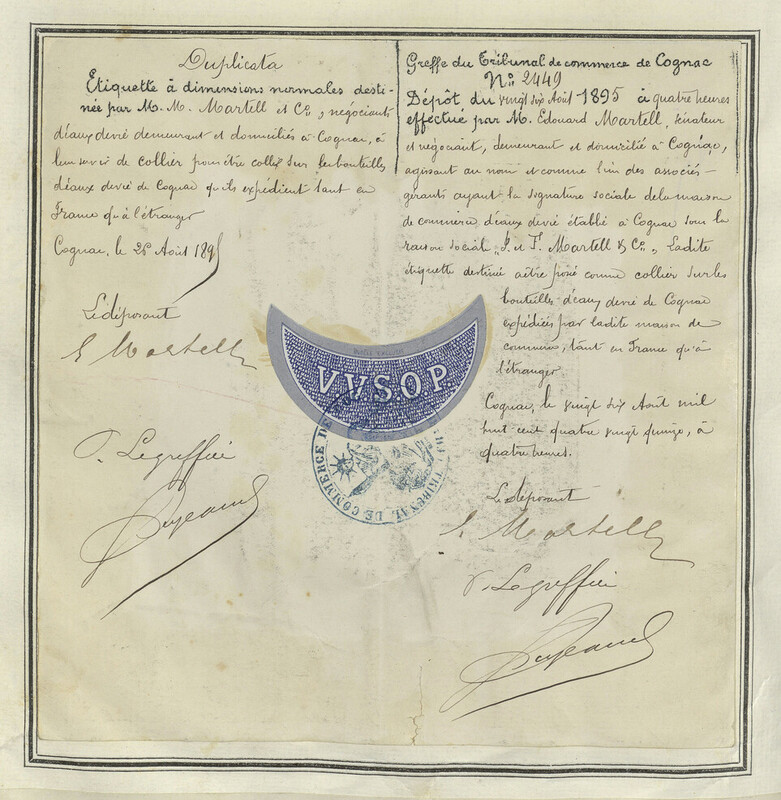 Duplicata
Etiquette à dimensions normales desti-
née par M. M. Martell et Cie, négociants
d'eaux devie demeurant et domiciliés à Cognac, à
leur servir de collier pour être collés sur les bouteilles
d'eaux devie de Cognac qu'ils expédient tant en
France qu'à l'étranger
Cognac, le 26 Août 1895
Le déposant
E Martell
P. Le greffier
Greffe du Tribunal de commerce de Cognac
No 2449
Dépôt du vingt six Août 1895 à quatre heures
effectué par M. Edouard Martell, sénateur
et négociant, demeurant et domicilié à Cognac,
agissant au nom et comme l'un des associés-
gérants ayant la signature sociale de la maison
de commerce d'eaux devie établie à Cognac sous la
raison sociale "J. et F. Martell & Cie", Ladite
étiquette destinée à être posée comme collier sur les
bouteilles d'eaux devie de Cognac
expédiées par ladite maison de
commerce, tant en France qu'à
l'étranger
Cognac, le vingt six Août mil
huit cent quatre vingt quinze, à
quatre heures.
Le déposant
E Martell
P. Le greffier
V.V.S.O.P.
TRIBUNAL DE COMMERCE DE